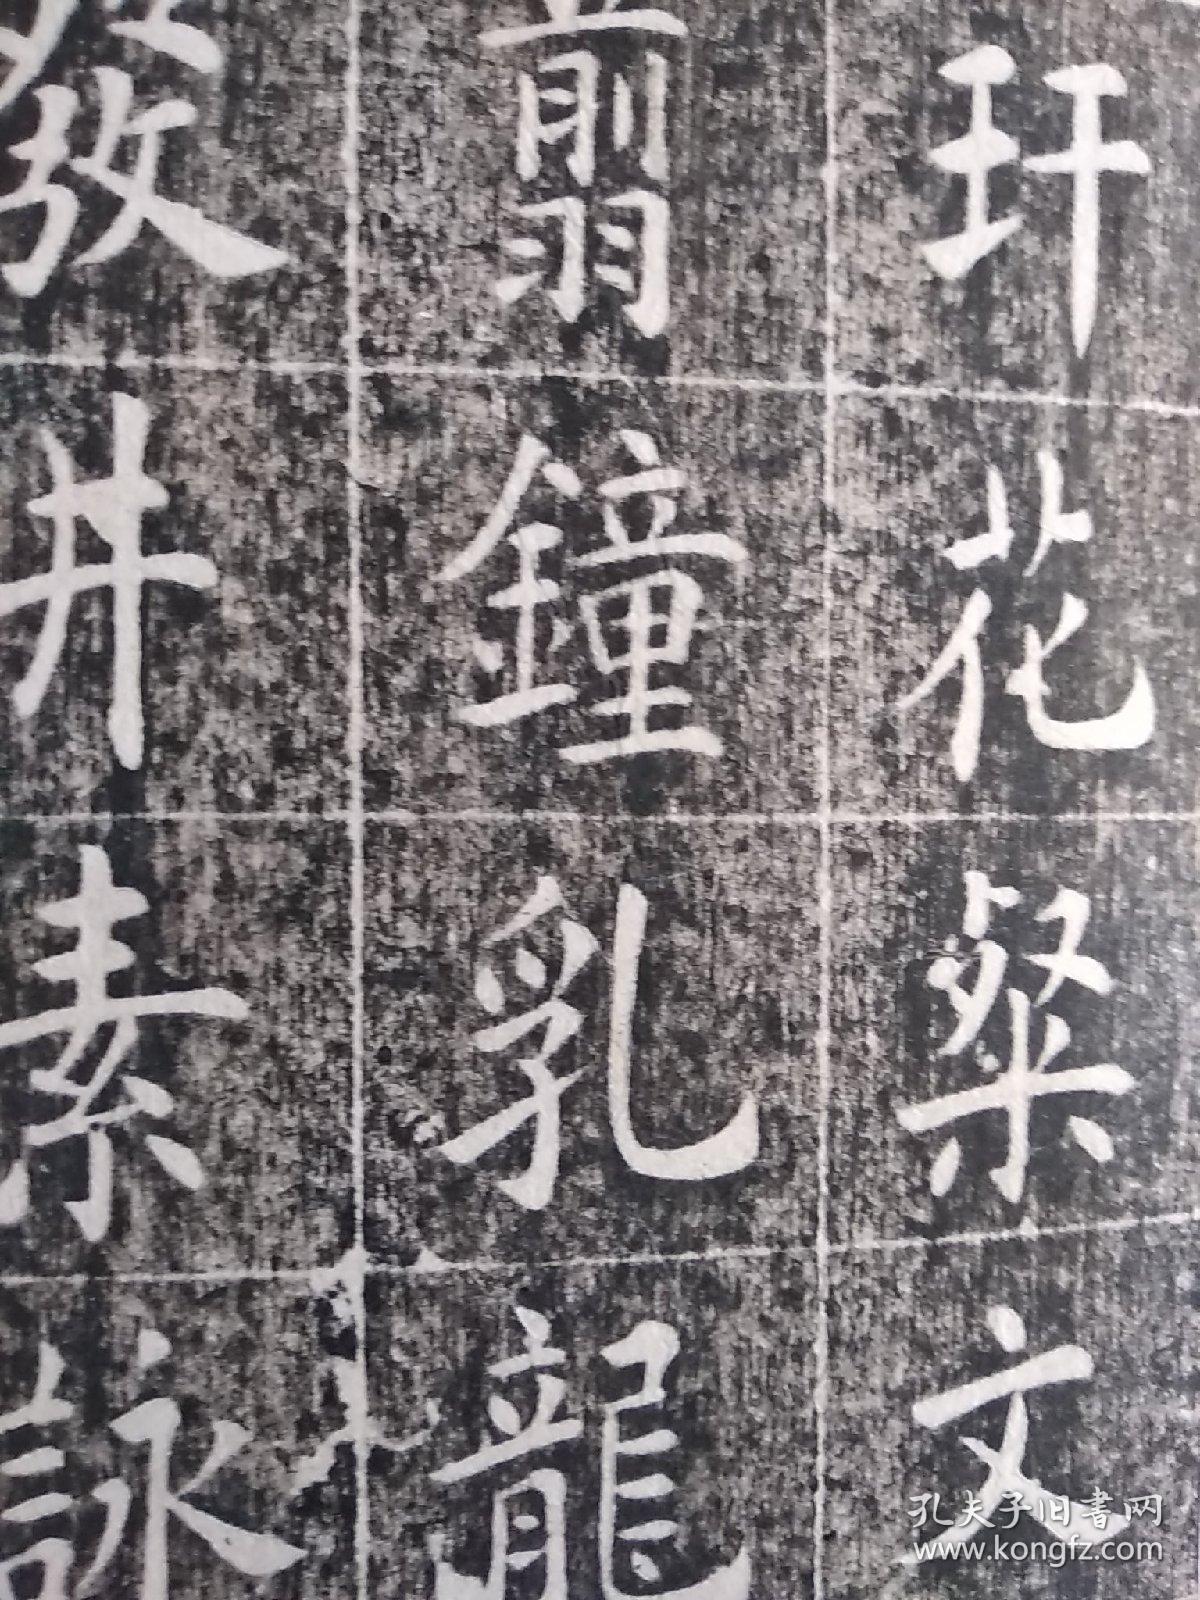 玕花粲文
翦鐘乳龍
發井素詠
孔夫子旧書网
www.kongfz.com